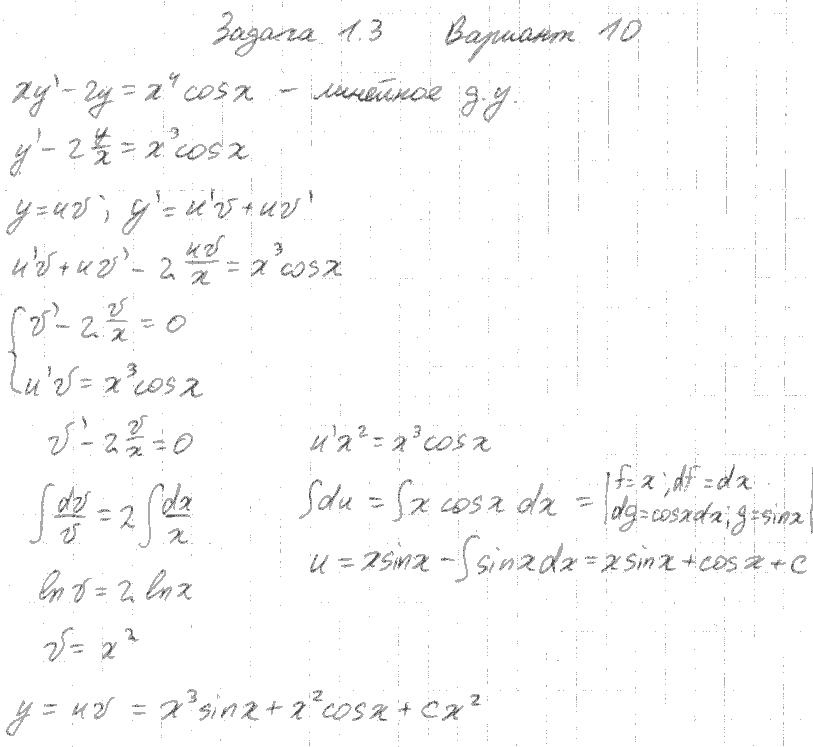 Задача 1.3 Вариант 10
xy' - 2y = x⁴ cosx - линейное д.у.
y' - 2 y/x = x³ cosx
y = uv; y' = u'v + uv'
u'v + uv' - 2 uv/x = x³ cosx
{ v' - 2 v/x = 0
u'v = x³ cosx
v' - 2 v/x = 0
∫ dv/v = 2 ∫ dx/x
ln v = 2 ln x
v = x²
u'x² = x³ cosx
∫ du = ∫ x cosx dx = | f = x; df = dx
dg = cosxdx; g = sinx |
u = x sinx - ∫ sinx dx = x sinx + cosx + c
y = uv = x³ sinx + x² cosx + cx²